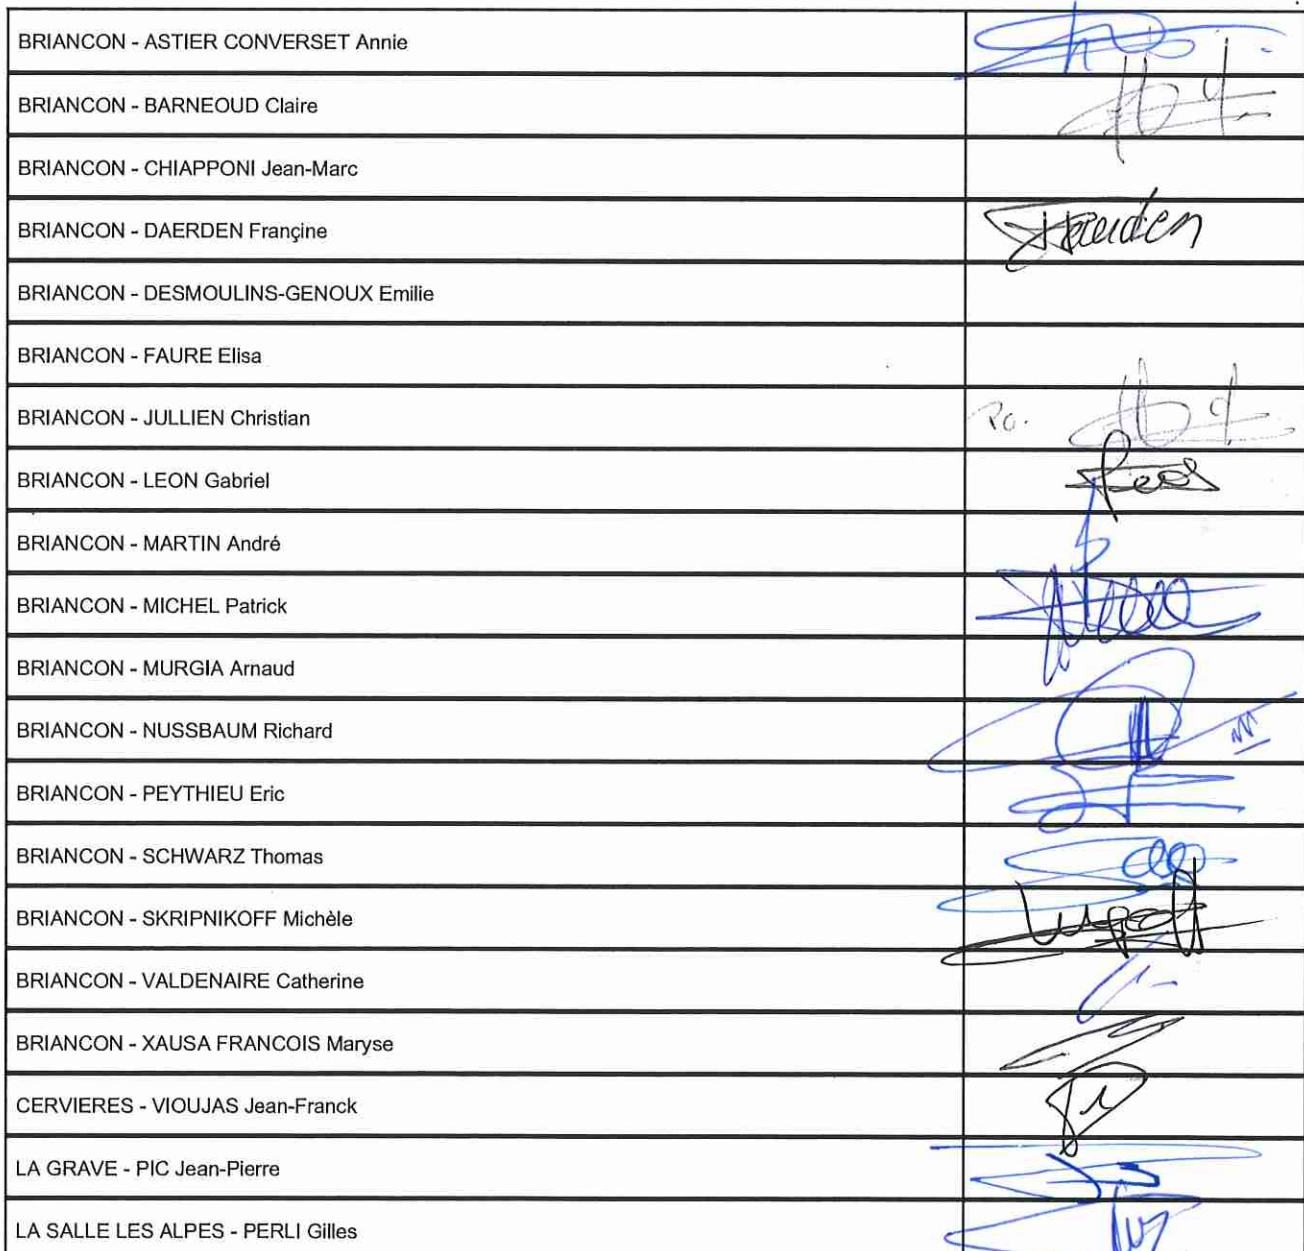 BRIANCON - ASTIER CONVERSET Annie
BRIANCON - BARNEOUD Claire
BRIANCON - CHIAPPONI Jean-Marc
BRIANCON - DAERDEN Françine
BRIANCON - DESMOULINS-GENOUX Emilie
BRIANCON - FAURE Elisa
BRIANCON - JULLIEN Christian
BRIANCON - LEON Gabriel
BRIANCON - MARTIN André
BRIANCON - MICHEL Patrick
BRIANCON - MURGIA Arnaud
BRIANCON - NUSSBAUM Richard
BRIANCON - PEYTHIEU Eric
BRIANCON - SCHWARZ Thomas
BRIANCON - SKRIPNIKOFF Michèle
BRIANCON - VALDENAIRE Catherine
BRIANCON - XAUSA FRANCOIS Maryse
CERVIERES - VIOUJAS Jean-Franck
LA GRAVE - PIC Jean-Pierre
LA SALLE LES ALPES - PERLI Gilles